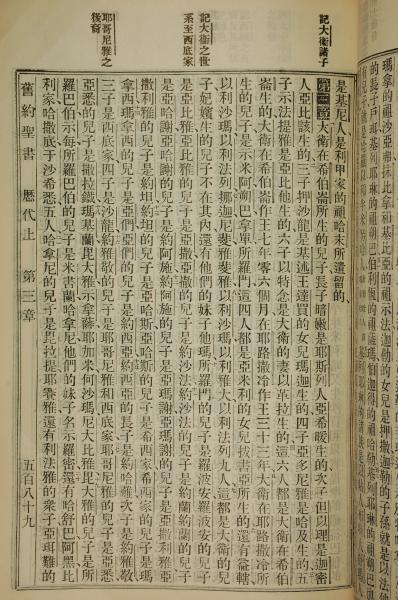 記大衛諸子
記大衛之世
系至西底家
耶哥尼雅之
後裔
是基尼人是利甲家的祖哈末所遺留的
第三章大衛在希伯崙所生的兒子長子暗嫩是耶斯列人亞希暖生的次子但以理是迦密
人亞比該生的三子押沙龍是基述王達買的女兒瑪迦生的四子亞多尼雅是哈及生的五
子示法提雅是亞比他生的六子以特念是大衛的妻以革拉生的這六人都是大衛在希伯
崙生的大衛在希伯崙作王七年零六個月在耶路撒冷作王三十三年大衛在耶路撒冷所
生的兒子是示米亞朔巴拿單所羅門這四人都是亞米利的女兒拔書亞所生的還有益轄
以利沙瑪以利法列挪迦尼斐雅斐雅以利沙瑪以利雅大以利法列九人這都是大衛的兒
子妃嬪生的兒子不在其內還有他們的妹子他瑪所羅門的兒子是羅波安羅波安的兒子
是亞比雅亞比雅的兒子是亞撒亞撒的兒子是約沙法約沙法的兒子是約蘭約蘭的兒子
是亞哈謝亞哈謝的兒子是約阿施約阿施的兒子是亞瑪謝亞瑪謝的兒子是亞撒利雅亞
撒利雅的兒子是約坦約坦的兒子是亞哈斯亞哈斯的兒子是希西家希西家的兒子是瑪
拿西瑪拿西的兒子是亞們亞們的兒子是約西亞約西亞的長子是約哈難次子是約雅敬
三子是西底家四子是沙龍約雅敬的兒子是耶哥尼雅和西底家耶哥尼雅的兒子是亞悉
亞悉的兒子是撒拉鐵瑪基蘭毘大雅示拿薩耶加米何沙瑪尼大比雅毘大雅的兒子是所
羅巴伯示每所羅巴伯的兒子是米書蘭哈拿尼他們的妹子名示羅密還有哈舒巴阿黑比
利家哈撒底于沙希悉五人哈拿尼的兒子是毘拉提耶賽雅還有利法雅的衆子亞珥難的
舊約聖書 歷代上 第三章 五百八十九